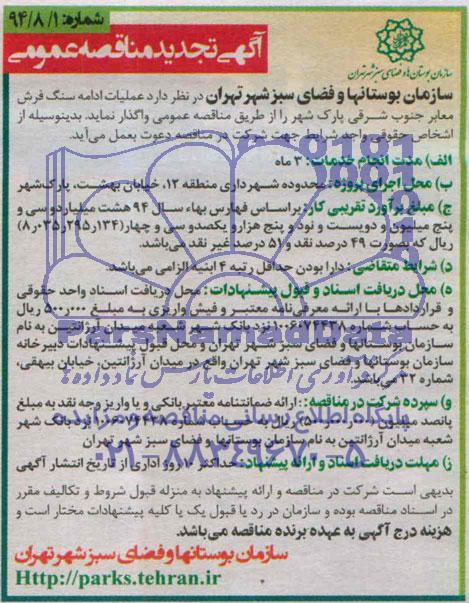 شماره: ۹۴/۸/۱
آگهی تجدید مناقصه عمومی
سازمان بوستان‌ها و فضای سبز شهر تهران
سازمان بوستانها و فضای سبز شهر تهران در نظر دارد عملیات ادامه سنگ فرش
معابر جنوب شرقی پارک شهر را از طریق مناقصه عمومی واگذار نماید. بدینوسیله از
اشخاص حقوقی واجد شرایط جهت شرکت در مناقصه دعوت بعمل می‌آید.
الف) مدت انجام خدمات: ۳ ماه
ب) محل اجرای پروژه: محدوده شهرداری منطقه ۱۲، خیابان بهشت، پارک‌شهر
ج) مبلغ برآورد تقریبی کار: براساس فهارس بهاء سال ۹۴ هشت میلیارد و سی و
پنج میلیون و دویست و نود و پنج هزار و یکصد و سی و چهار (۸٫۰۳۵٫۲۹۵٫۱۳۴)
ریال که بصورت ۴۹ درصد نقد و ۵۱ درصد غیر نقد می‌باشد.
د) شرایط متقاضی: دارا بودن حداقل رتبه ۴ ابنیه الزامی می‌باشد.
ه) محل دریافت اسناد و قبول پیشنهادات: محل دریافت اسناد واحد حقوقی
و قراردادها با ارائه معرفی‌نامه معتبر و فیش واریزی به مبلغ ۵۰۰٫۰۰۰ ریال
به حساب شماره ۱۰۰۶۰۷۴۴۳۸ نزد بانک شهر شعبه میدان آرژانتین به نام
سازمان بوستانها و فضای سبز شهر تهران و محل قبول پیشنهادات دبیرخانه
سازمان بوستانها و فضای سبز شهر تهران واقع در میدان آرژانتین، خیابان بیهقی،
شماره ۳۲ می‌باشد.
و) سپرده شرکت در مناقصه: ارائه ضمانتنامه معتبر بانکی و یا واریز وجه نقد به مبلغ
پانصد میلیون ریال به حساب شماره نزد بانک شهر
شعبه میدان آرژانتین به نام سازمان بوستانها و فضای سبز شهر تهران
ز) مهلت دریافت اسناد و ارائه پیشنهاد: حداکثر ۱۰ روز اداری از تاریخ انتشار آگهی
بدیهی است شرکت در مناقصه و ارائه پیشنهاد به منزله قبول شروط و تکالیف مقرر
در اسناد مناقصه بوده و سازمان در رد یا قبول یک یا کلیه پیشنهادات مختار است و
هزینه درج آگهی به عهده برنده مناقصه می‌باشد.
سازمان بوستانها و فضای سبز شهر تهران
Http://parks.tehran.ir
ParsNamadData
مرکز فرآوری اطلاعات پارس نماد داده ها
پایگاه اطلاع رسانی مناقصه و مزایده
۰۲۱-۸۸۳۴۹۶۷۰-۵